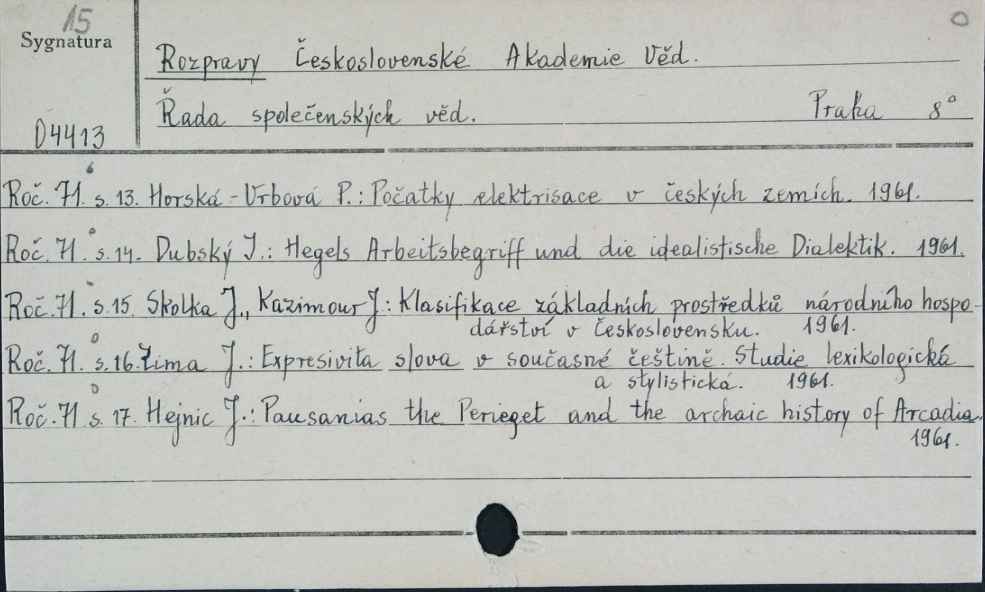 15
Sygnatura
Rozpravy Československé Akademie Věd.
Řada společenských věd. Praka 8°
D4413
Roč. 71. s. 13. Horská - Vrbová P.: Počatky elektrisace v českých zemích. 1961.
Roč. 71. s. 14. Dubský J.: Hegels Arbeitsbegriff und die idealistische Dialektik. 1961.
Roč. 71. s. 15 Skolka J., Kazimour J: Klasifikace základních prostředků národního hospo-
dářství v Československu. 1961.
Roč. 71. s. 16. Zima J.: Expresivita slova v současné češtině. Studie lexikologická
a stylistická. 1961.
Roč. 71 s. 17. Hejnic J.: Pausanias the Perieget and the archaic history of Arcadia.
1961.